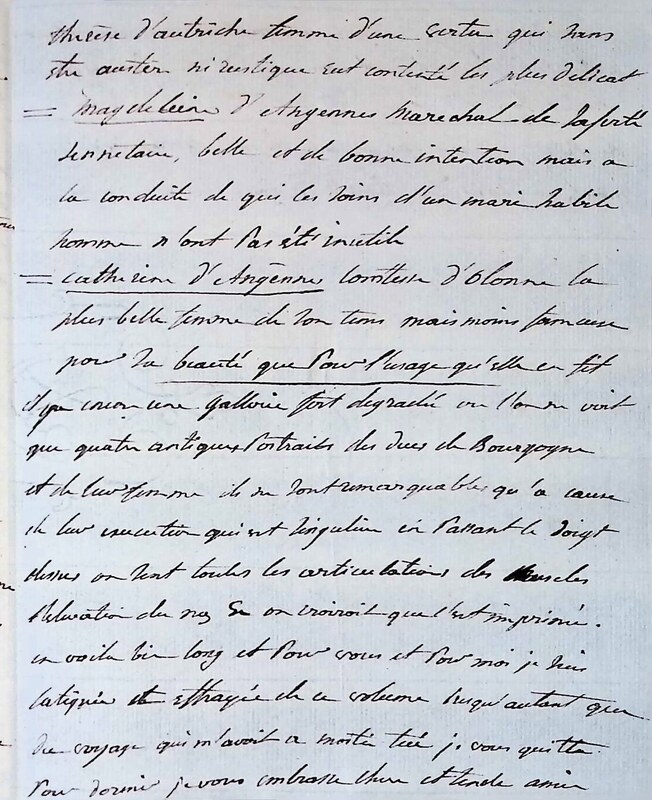 thérèse d'autriche femme d'une vertu qui sans
etre austere ni rustique eut contenté les plus délicat
= magdeleine d'Angennes marechal de laferté
sennetaire, belle et de bonne intention mais a
la conduite de qui les soins d'un mari habile
homme n'ont pas été inutile
= catherine d'Angennes comtesse d'olonne la
plus belle femme de son tems mais moins fameuse
pour sa beauté que pour l'usage qu'elle en fit
il y a encor une gallerie fort degradée ou l'on ne voit
que quatre antiques Portraits des ducs de Bourgogne
et de leur femme ils ne sont remarquables qu'a cause
de leur execution qui est singuliere en Passant le doigt
dessus on sent toutes les articulations des muscles
l'elevation du nez on croiroit que c'est imprimé.
en voila bien long et Pour vous et Pour moi je suis
fatiguée et effrayée de ce volume presqu'autant que
du voyage qui m'avoit a moitié tuée je vous quitte.
Pour dormir je vous embrasse chere et tendre amie